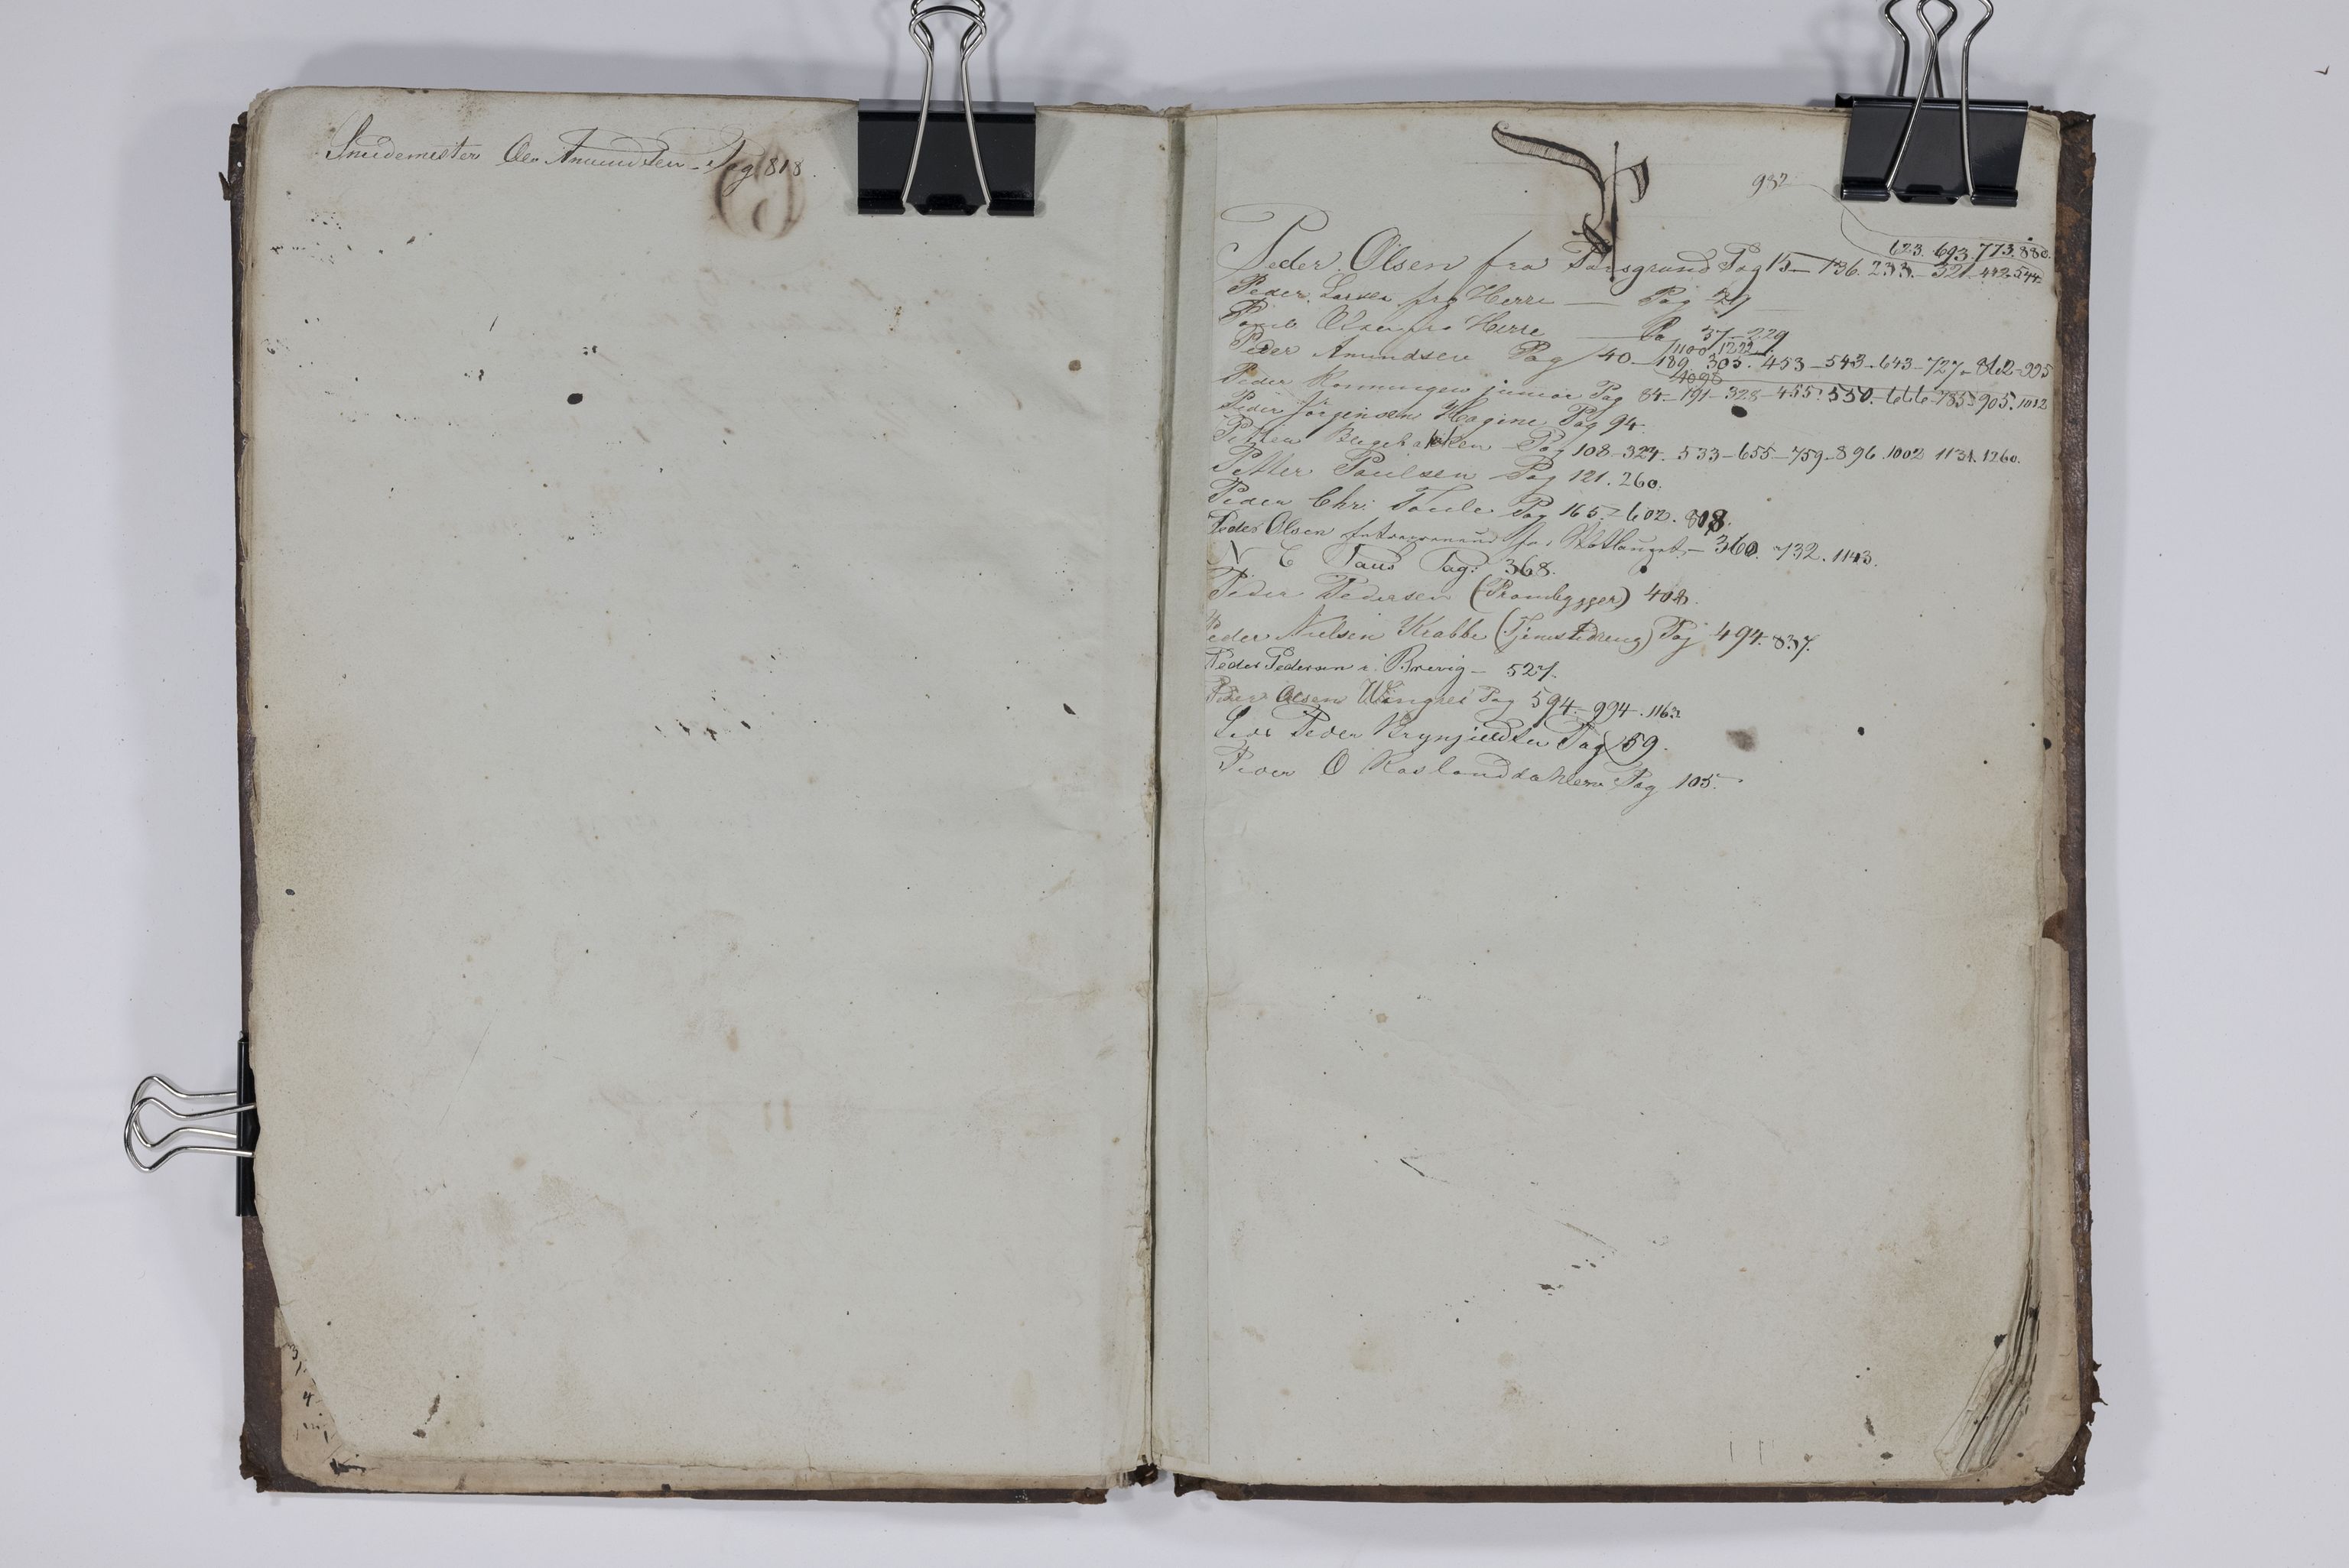 Smedemester Ole Amundsen - Pag 818.
P
982
623. 693. 773. 880.
Peder Olsen fra Porsgrund Pag 15 - 136. 233. - 321 - 442. 544
Peder Larsen fra Herre - Pag 29
Olsen fra Herre - Pa 37 - 229
1100 1222
Peder Amundsen Pag 40 - 189 305. 453 - 543 - 643 - 727 - 862 - 995
Peder junior Pag 84 - 191 - 328 - 455 - 550. - 666 - 785 - 905. 1012
Peder Jörgensen Hagine Pag 94.
Petter Pag 108 - 324. 533 - 655 - 759 - 896. 1002 1131. 1260.
Petter Paulsen Pag 121. 260.
Peder Chr. Pag 165. 602. 808.
Peder Olsen fra - 360. 732. 1143.
N C Paus Pag: 368.
Peder Pedersen (Prambygger) 402.
Peder Nielsen Krabbe (Tjenestedreng) Pag 494. 837.
Peder Pedersen i Brevig - 527.
Peder Olsen Wingrei Pag 594. - 994. 1163
Peder Brynjieldsen Pag 159.
Peder O Raslanddahlen Pag 105.